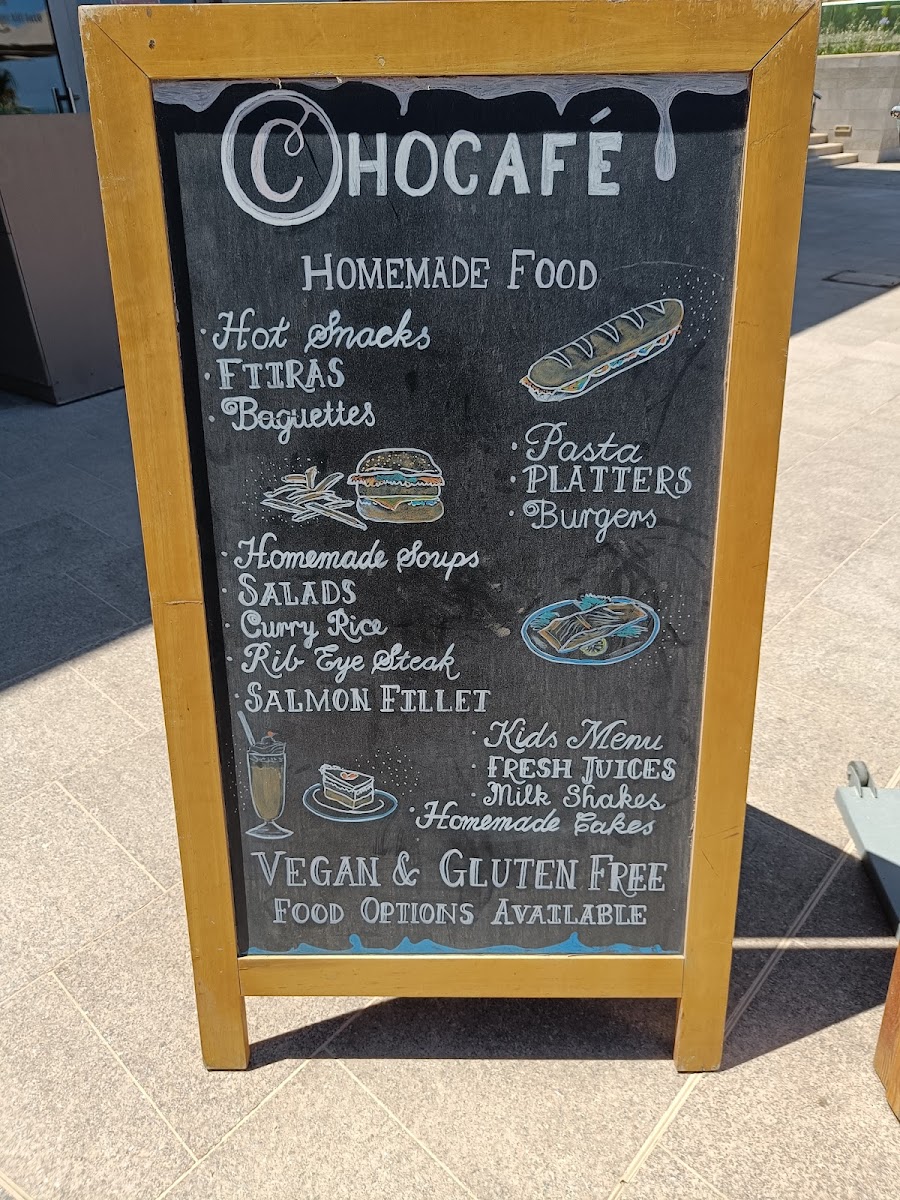 CHOCAFÉ
HOMEMADE FOOD
· Hot Snacks
· FTIRAS
· Baguettes
· Pasta
· PLATTERS
· Burgers
· Homemade Soups
· SALADS
· Curry Rice
· Rib Eye Steak
· SALMON FILLET
· Kids Menu
· FRESH JUICES
· Milk Shakes
· Homemade Cakes
VEGAN & GLUTEN FREE
FOOD OPTIONS AVAILABLE